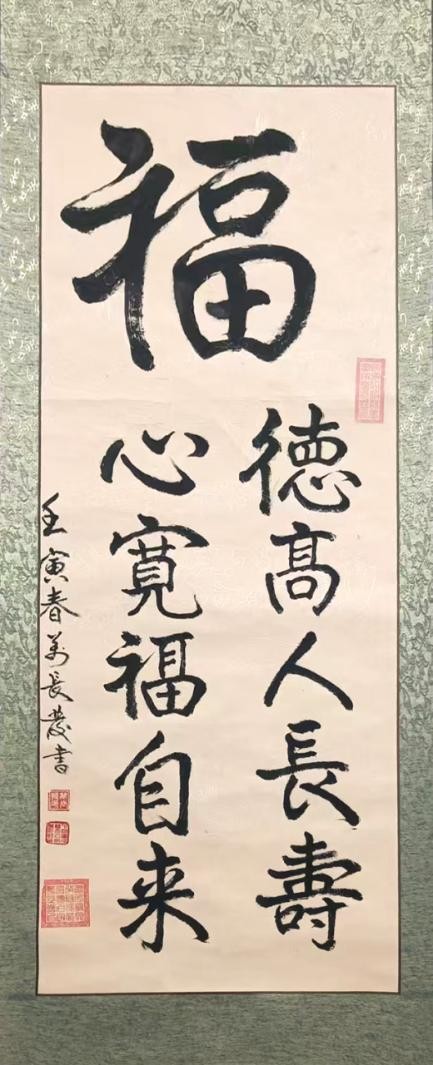 福
德高人長壽
心寬福自来
壬寅春萬長發書